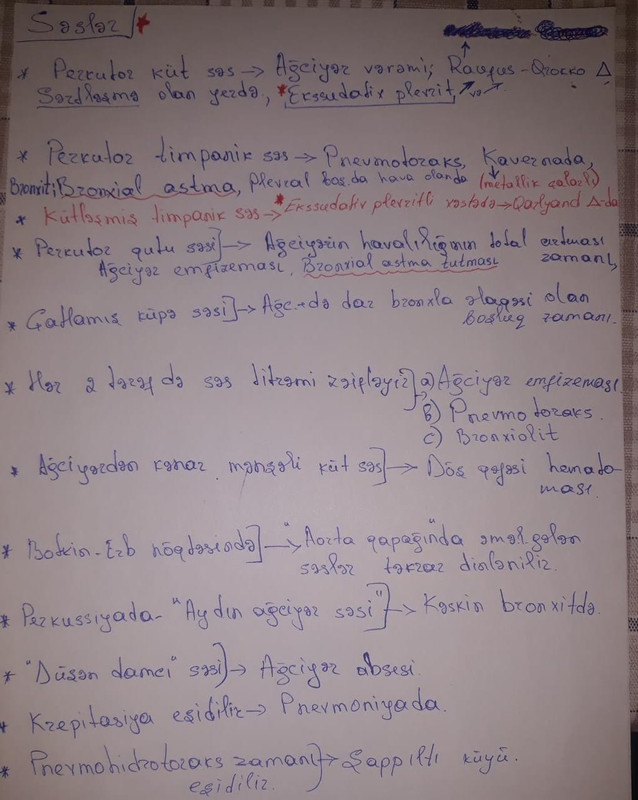 Səslər *
* Perkutor küt səs → Ağciyər vərəmi, Rauxfus-Qrokko Δ
Sərtləşmə olan yerdə, *Ekssudativ plevrit, və
* Perkutor timpanik səs → Pnevmotoraks, Kavernada,
Bronxit, Bronxial astma, Plevral boş.da hava olanda (metallik çalarlı)
* Kütləşmiş timpanik səs → Ekssudativ plevritli xəstədə → Qarlyand Δ-da
* Perkutor qutu səsi] → Ağciyərin havalılığının total artması zamanı,
Ağciyər emfizeması, Bronxial astma tutması
* Çatlamış küpə səsi] → Ağc.-də dar bronxla əlaqəsi olan
boşluq zamanı.
* Hər 2 tərəfdə səs titrəmi zəifləyir] → a) Ağciyər emfizeması.
b) Pnevmotoraks.
c) Bronxiolit
* Ağciyərdən kənar mənşəli küt səs] → Döş qəfəsi hemato-
ması.
* Botkin-Erb nöqtəsində] → "Aorta qapağı"nda əmələ gələn
səslər təkrar dinlənilir.
* Perkussiyada - "Aydın ağciyər səsi"] → Kəskin bronxitdə.
* "Düşən damcı" səsi] → Ağciyər absesi.
* Krepitasiya eşidilir → Pnevmoniyada.
* Pnevmohidrotoraks zamanı] → Şappıltı küyü.
eşidilir.